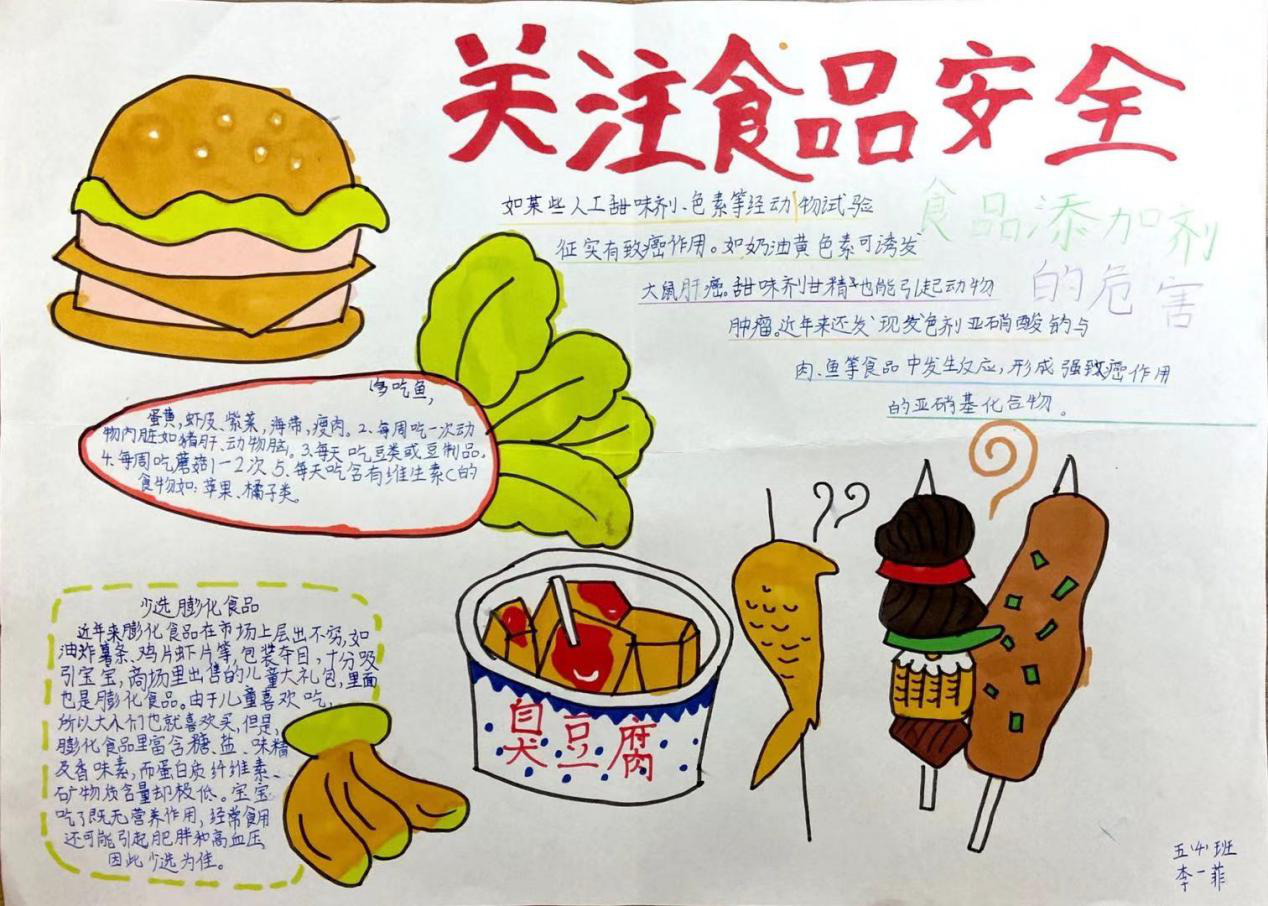 关注食品安全
食品添加剂
的危害
如某些人工甜味剂、色素等经动物试验
征实有致癌作用。如奶油黄色素可诱发
大鼠肝癌。甜味剂甘精也能引起动物
肿瘤。近年来还发现发色剂亚硝酸钠与
肉、鱼等食品中发生反应,形成强致癌作用
的亚硝基化合物。
多吃鱼,
蛋黄,虾皮、紫菜,海带,瘦肉。2、每周吃一次动
物内脏如猪肝、动物脑。3、每天吃豆类或豆制品。
4、每周吃蘑菇1-2次、5、每天吃含有维生素C的
食物如:苹果、橘子类。
少选膨化食品
近年来膨化食品在市场上层出不穷,如
油炸薯条、鸡片虾片等,包装夺目,十分吸
引宝宝,商场里出售的儿童大礼包,里面
也是膨化食品。由于儿童喜欢吃,
所以大人们也就喜欢买,但是,
膨化食品里富含糖、盐、味精
及香味素,而蛋白质纤维素、
矿物质含量却极低。宝宝
吃了既无营养作用,经常食用
还可能引起肥胖和高血压
因此少选为佳。
臭豆腐
五(4)班
李一菲